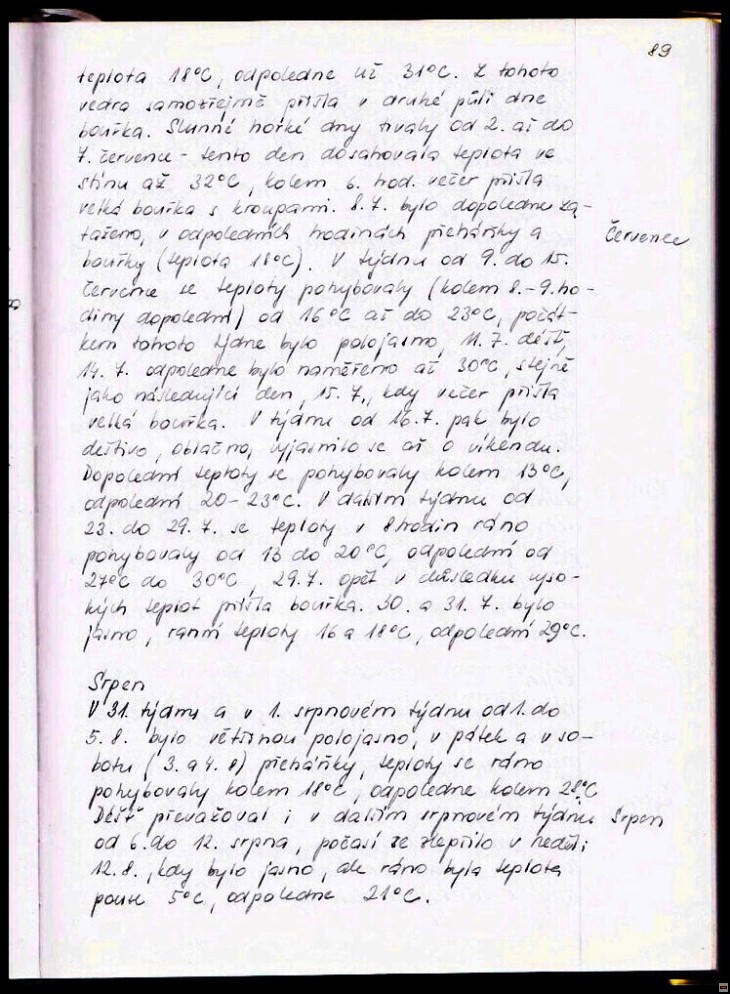 89
teplota 18°C, odpoledne už 31°C. Z tohoto
vedra samozřejmě přišla v druhé půli dne
bouřka. Slunné horké dny trvaly od 2. až do
7. července - tento den dosahovala teplota ve
stínu až 32°C, kolem 6. hod. večer přišla
velká bouřka s kroupami. 8.7. bylo dopoledne za-
taženo, v odpoledních hodinách přeháňky a
Červenec
bouřky (teplota 18°C). V týdnu od 9. do 15.
července se teploty pohybovaly (kolem 8.-9. ho-
diny dopolední) od 16°C až do 23°C, počát-
kem tohoto týdne bylo polojasno, 11.7. déšť,
14.7. odpoledne bylo naměřeno až 30°C, stejně
jako následující den, 15.7., kdy večer přišla
velká bouřka. V týdnu od 16.7. pak bylo
deštivo, oblačno, vyjasnilo se až o víkendu.
Dopolední teploty se pohybovaly kolem 13°C,
odpolední 20-23°C. V dalším týdnu od
23. do 29.7. se teploty v 8 hodin ráno
pohybovaly od 13 do 20°C, odpolední od
27°C do 30°C, 29.7. opět v důsledku vyso-
kých teplot přišla bouřka. 30. a 31.7. bylo
jasno, ranní teploty 16 a 18°C, odpolední 29°C.
Srpen
V 31. týdnu a v 1. srpnovém týdnu od 1. do
5.8. bylo většinou polojasno, v pátek a v so-
botu (3. a 4. 8) přeháňky, teploty se ráno
pohybovaly kolem 18°C, odpoledne kolem 28°C.
Déšť převažoval i v dalším srpnovém týdnu
Srpen
od 6. do 12. srpna, počasí se zlepšilo v neděli
12.8., kdy bylo jasno, ale ráno byla teplota
pouze 5°C, odpoledne 21°C.